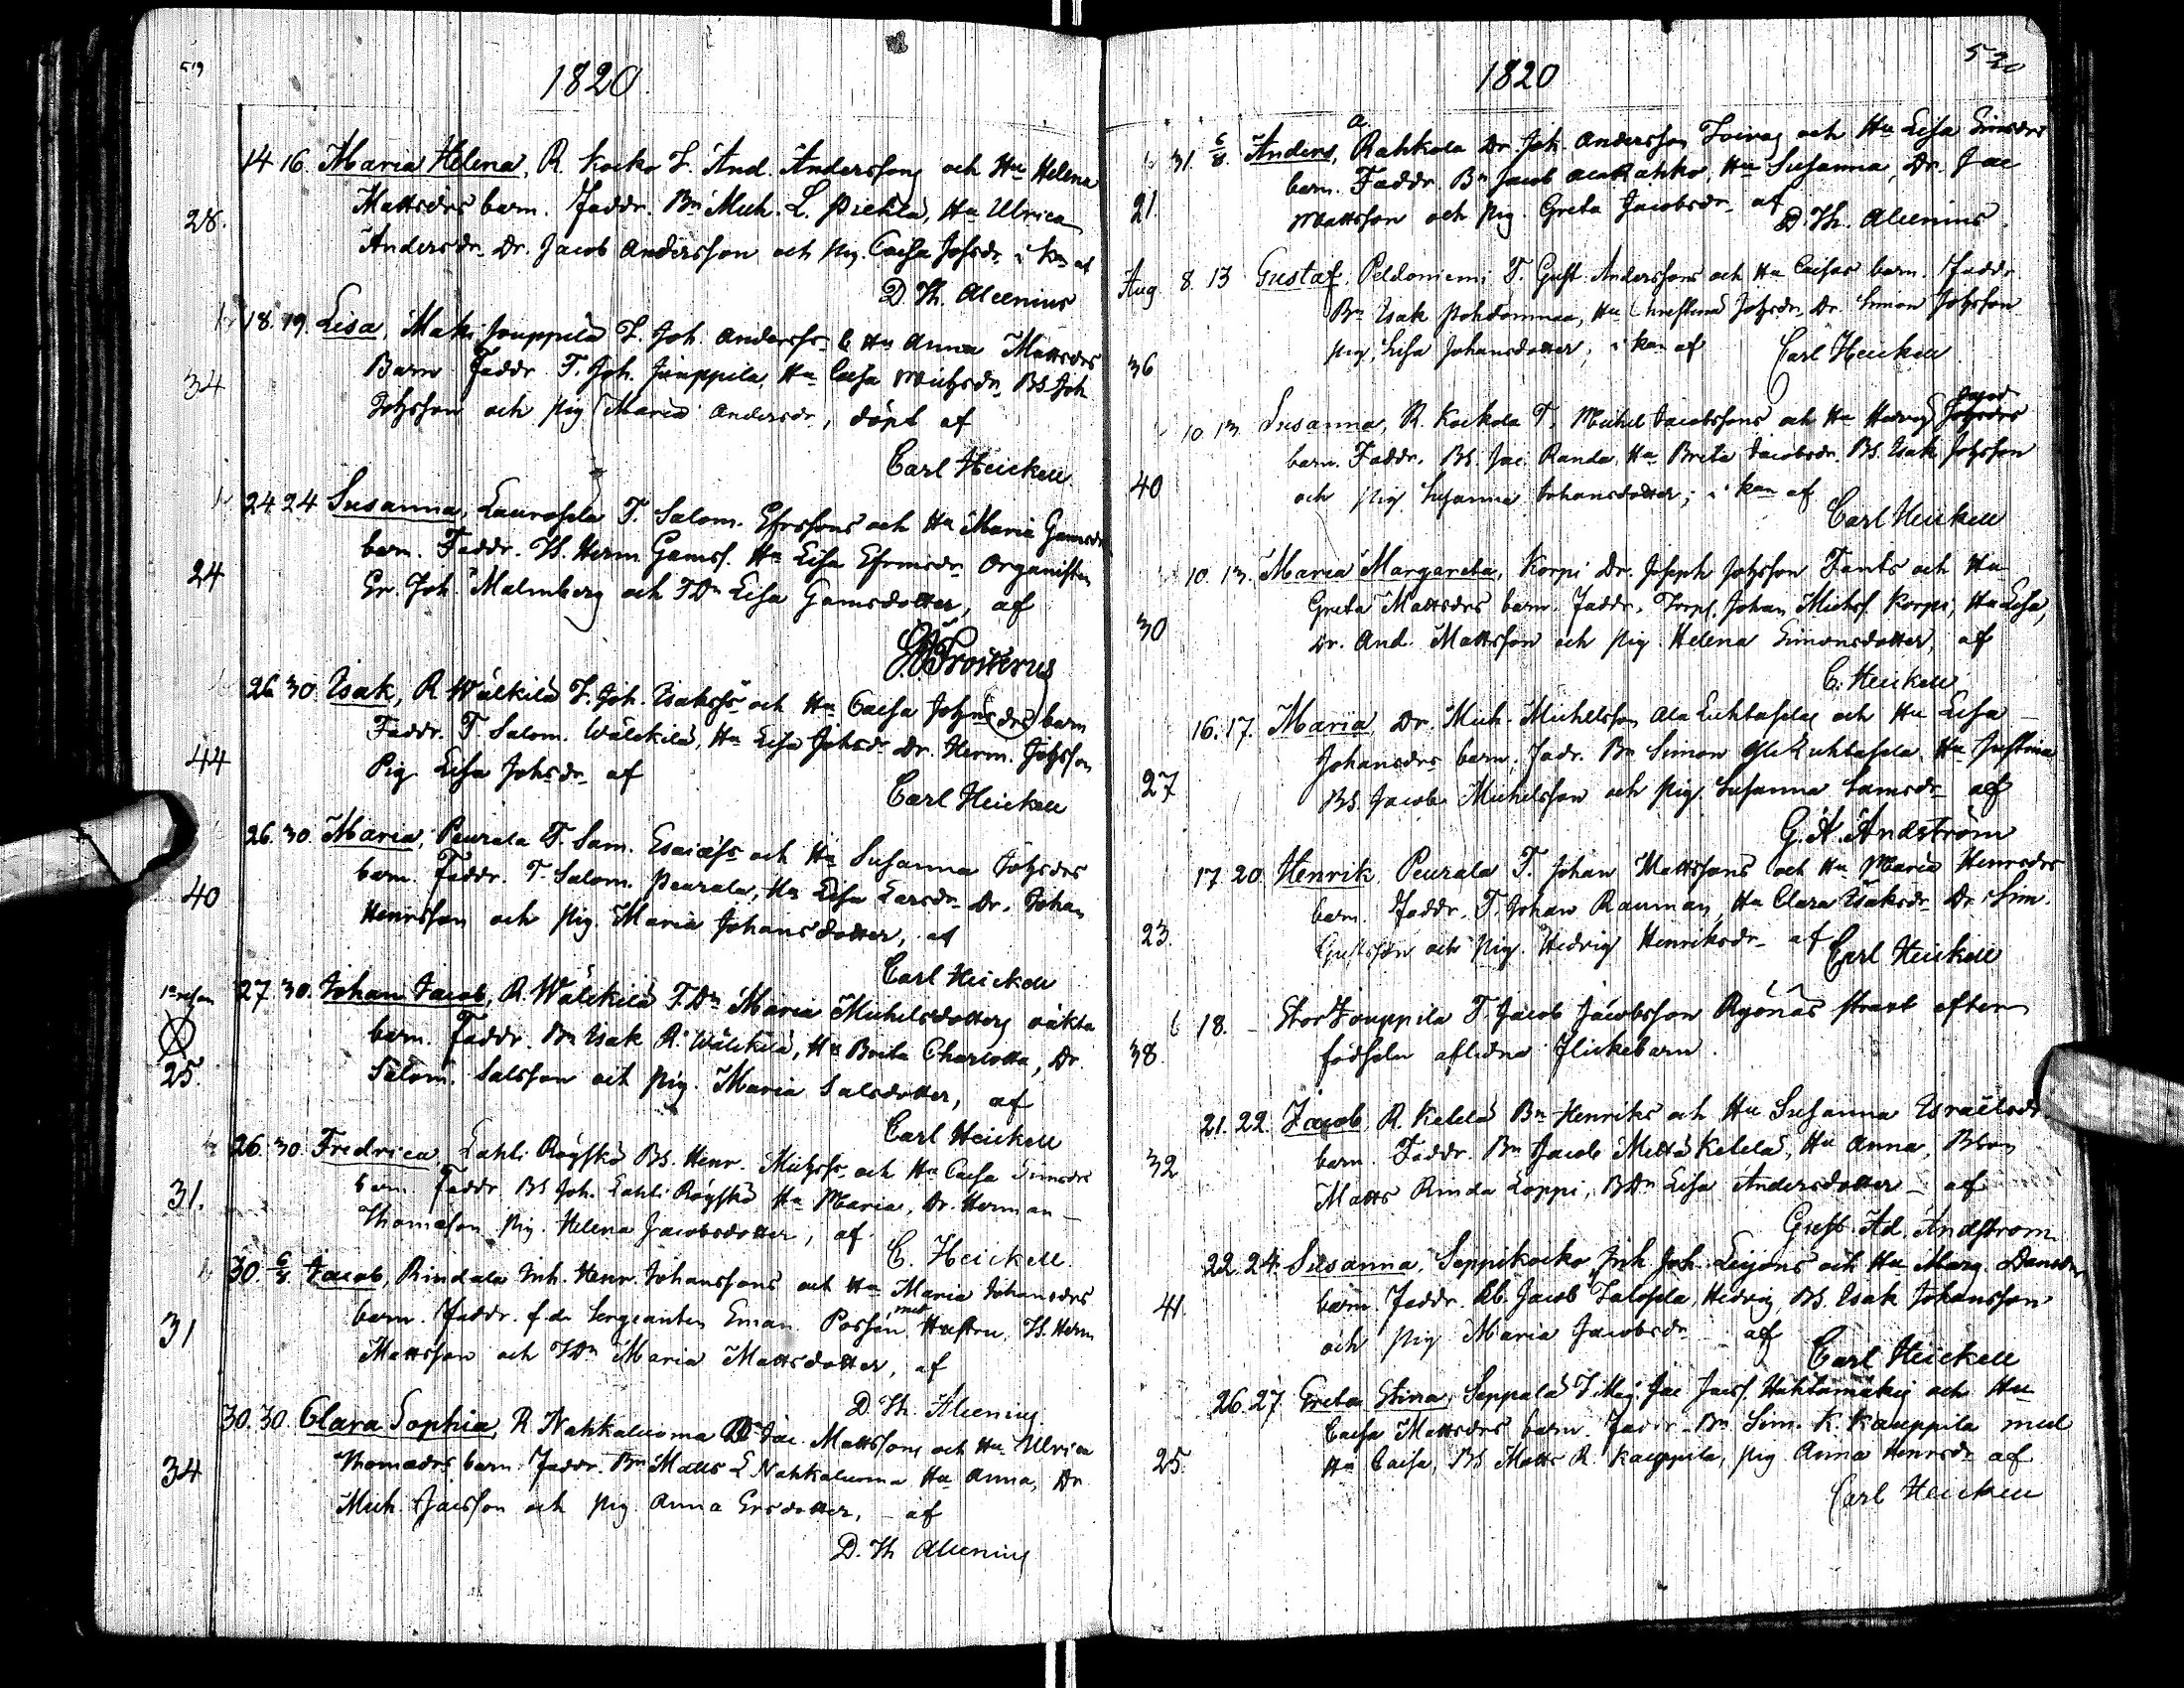 519
1820.
14 16. Maria Helena, R. Kocko T. And. Anderssons och Hu Helena
28. Mattsdrs barn. Faddr. Bn Mich. L. Piehla, Hu Ulrica
Andersdr. Dr. Jacob Andersson och pig. Caisa Johsdr. i kan af
D. Th. Alcenius
18. 19. Lisa, Maki Jouppila T. Joh. Anderss. & Hu Anna Mattsdrs
34 Barn Faddr. T. Joh. Jouppila, Hu Caisa Michsdr, Bs. Joh.
Johsson och pig Maria Andersdr, döpt af
Carl Heickell
24 24 Susanna, Laurosela T. Salom. Efrssons och Hu Maria Gamsdr
24 barn. Faddr. Th. Herm. Gamss. Hu Lisa Efrmsdr Organisten
Gr. Joh. Malmberg och TDn Lisa Gamsdotter, af
Prosterus
26. 30. Isak, R Wälkilä T. Joh. Isakss och Hu Caisa Johnsdrs barn
44 Faddr. T. Salom. Wälckilä, Hu Lisa Johsdr Dr. Herm. Johsson
Pig Lisa Johsdr af
Carl Heickell
26. 30. Maria, Peurala T. Sam. Esaiæss och Hu Susanna Johsdrs
40 barn. Faddr. T. Salom. Peurala, Hu Lisa Larsdr Dr. Johan
Henrsson och pig. Maria Johansdotter, af
Carl Heickell
27. 30. Johan Jacob, R. Wälckilä TDn Maria Michelsdotters oäkta
barn. Faddr. Bn Isak R. Wälckilä, Hu Brita Charlotta, Dr.
25. Salom. Salsson och pig. Maria Salsdotter, af
Carl Heickell
26. 30 Fredrica Lahti Röyskö Bs. Henr. Michss och Hu Caisa Simsdrs
31. barn. Faddr. Bs Joh. Lahti Röyskö Hu Maria, Dr. Herman
Thomasson pig. Helena Jacobsdotter, af
C. Heickell.
30. 6/8 Jacob, Rindala Inh. Henr. Johanssons och Hu Maria Johansdrs
31 barn. Faddr. f.d. Sergeanten Eman. Possén med Hustru, Th. Herm
Mattsson och TDn Maria Mattsdotter, af
D. Th. Alcenius.
30. 30. Clara Sophia, R Nahkaluoma Dr Jac. Mattssons och Hu Ulrica
34 Thomasdrs barn Faddr. Bn Matts L Nahkaluoma Hu Anna, Dr
Mich. Jacsson och pig. Anna Ersdotter, af
D. Th Alcenius
520
1820
31. 6/8. Anders, Rahkola Dr. Joh. Andersson Toivas och Hu Lisa Simsdrs
21. barn. Faddr. Bn Jacob Ala Rahko, Hu Susanna, Dr. Jac
Mattsson och pig. Greta Jacobsdr. af
D. Th. Alcenius.
Aug 8. 13 Gustaf. Peldoniemi T. Gust. Anderssons och Hu Caisas barn. Faddr
Bn Isak Pohdomaa, Hu Christina Johsdr. Dr. Simon Johsson
36 pig. Lisa Johansdotter; i kan af Carl Heickell
10. 13. Susanna, R. Kockola T. Michel Jacobssons och Hu Hedvig Johsdrs
40 barn. Faddr. Bs. Jac. Randa, Hu Brita Jacobsdr. Bs. Isak Johsson
och pig Susanna Johansdotter; i kan af
Carl Heickell
10. 13. Maria Margareta, Korpi Dr. Joseph Johsson Fants och Hu
Greta Mattsdrs barn. Faddr. Torp. Johan Michss. Korpi, Hu Lisa,
30 Dr. And. Mattsson och pig. Helena Simonsdotter, af
C. Heickell
16. 17. Maria, Dr. Mich. Michelsson Ala Luhtasela och Hu Lisa
Johansdrs barn; Fadr. Bn Simon Yli Luhtasela, Hu Justina
27 Bs. Jacob Michelsson och pig. Susanna Samsdr af
G. A. Andström
17 20. Henrik, Peurala T. Johan Mattssons och Hu Maria Henrsdrs
barn. Faddr. T. Johan Rauman, Hu Clara Isaksdr. Dr. Sim.
23. Gustsson och pig. Hedvig Henriksdr. af Carl Heickell
18. Stor Jouppila T. Jacob Jacobsson Ryönäs strax efter
38. födseln aflidna Flickebarn.
21. 22. Jacob R. Ketelä Bn Henriks och Hu Susanna Israelsdr.
32 barn. Faddr. Bn Jacob Mettä Ketelä, Hu Anna, Bson
Matts Rinda Loppi, BDn Lisa Andersdotter af
Gust. Ad. Andström
22. 24. Susanna, Seppikocko Inh Joh. Leijons och Hu Marg. Dansdr
41. barn. Faddr. Rb. Jacob Talosela, Hedvig, Bs. Isak Johansson
och pig Maria Jacobsdr af
Carl Heickell
26. 27. Greta Stina, Seppälä T.Mag. Jac Jacss. Huhtamäkis och Hu
Caisa Mattsdrs barn. Faddr. Bn Sim. K. Kauppila med
25. Hu Caisa, Bs Matts R. Kauppila, pig Anna Henrsdr. af
Carl Heickell